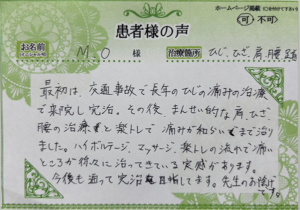 ホームページ掲載
可・不可
患者様の声
お名前
M O 様
治療箇所
ひじ、ひざ、肩、腰 
最初は、交通事故で長年のひじの痛みの治療
で来院し完治。その後、まんせい的な肩、ひざ、
腰の治療をと楽トレで痛みが和らいで治り
ました。ハイボルテージ、マッサージ、楽トレの流れで痛い
ところが徐々に治ってきている実感があります。
今後も通って完治を目指してます。先生のお陰
です。